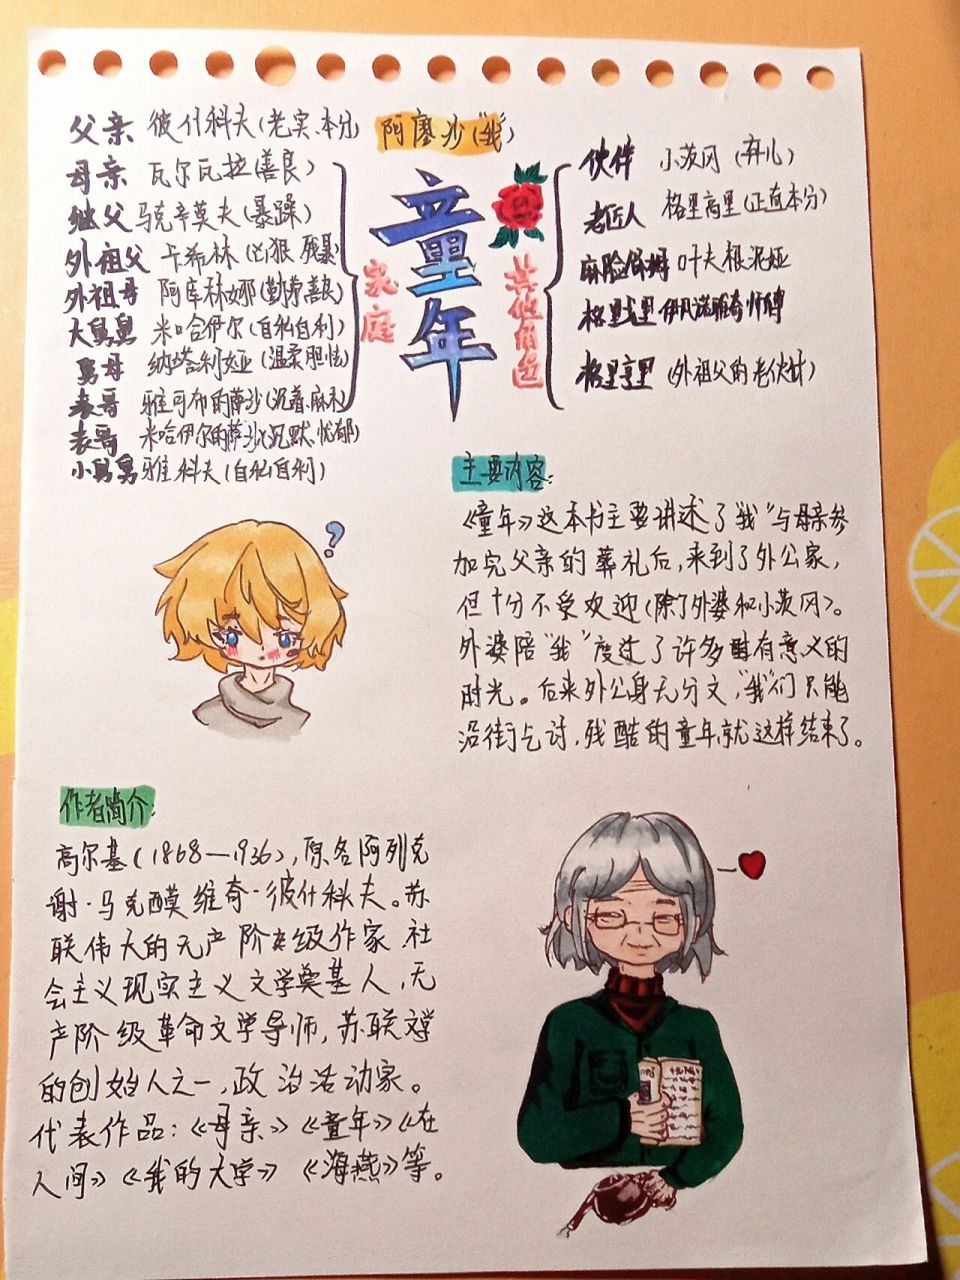 阿廖沙("我")
童年
家庭
其他角色
父亲 彼什科夫(老实、本分)
母亲 瓦尔瓦拉(善良)
继父 马克辛莫夫(暴躁)
外祖父 卡希林(凶狠 残暴)
外祖母 阿库林娜(勤劳善良)
大舅舅 米哈伊尔(自私自利)
舅母 纳塔利娅(温柔胆怯)
表哥 雅可布的萨沙(沉着、麻木)
表哥 米哈伊尔的萨沙(沉默、忧郁)
小舅舅 雅科夫(自私自利)
伙伴 小茨冈(弃儿)
老匠人 格里高里(正直本分)
麻脸保姆 叶夫根泥娅
格里戈里 伊凡诺维奇师傅
格里亨里 (外祖父的老伙计)
主要内容:
《童年》这本书主要讲述了"我"与母亲参
加完父亲的葬礼后,来到了外公家,
但十分不受欢迎(除了外婆和小茨冈)。
外婆陪"我"度过了许多有意义的
时光。后来外公身无分文,"我"们只能
沿街乞讨,残酷的童年就这样结束了。
?
作者简介:
高尔基(1868—1936),原名阿列克
谢·马克西莫维奇·彼什科夫。苏
联伟大的无产阶级作家 社
会主义现实主义文学奠基人,无
产阶级革命文学导师,苏联文学
的创始人之一,政治活动家。
代表作品:《母亲》《童年》《在
人间》《我的大学》《海燕》等。